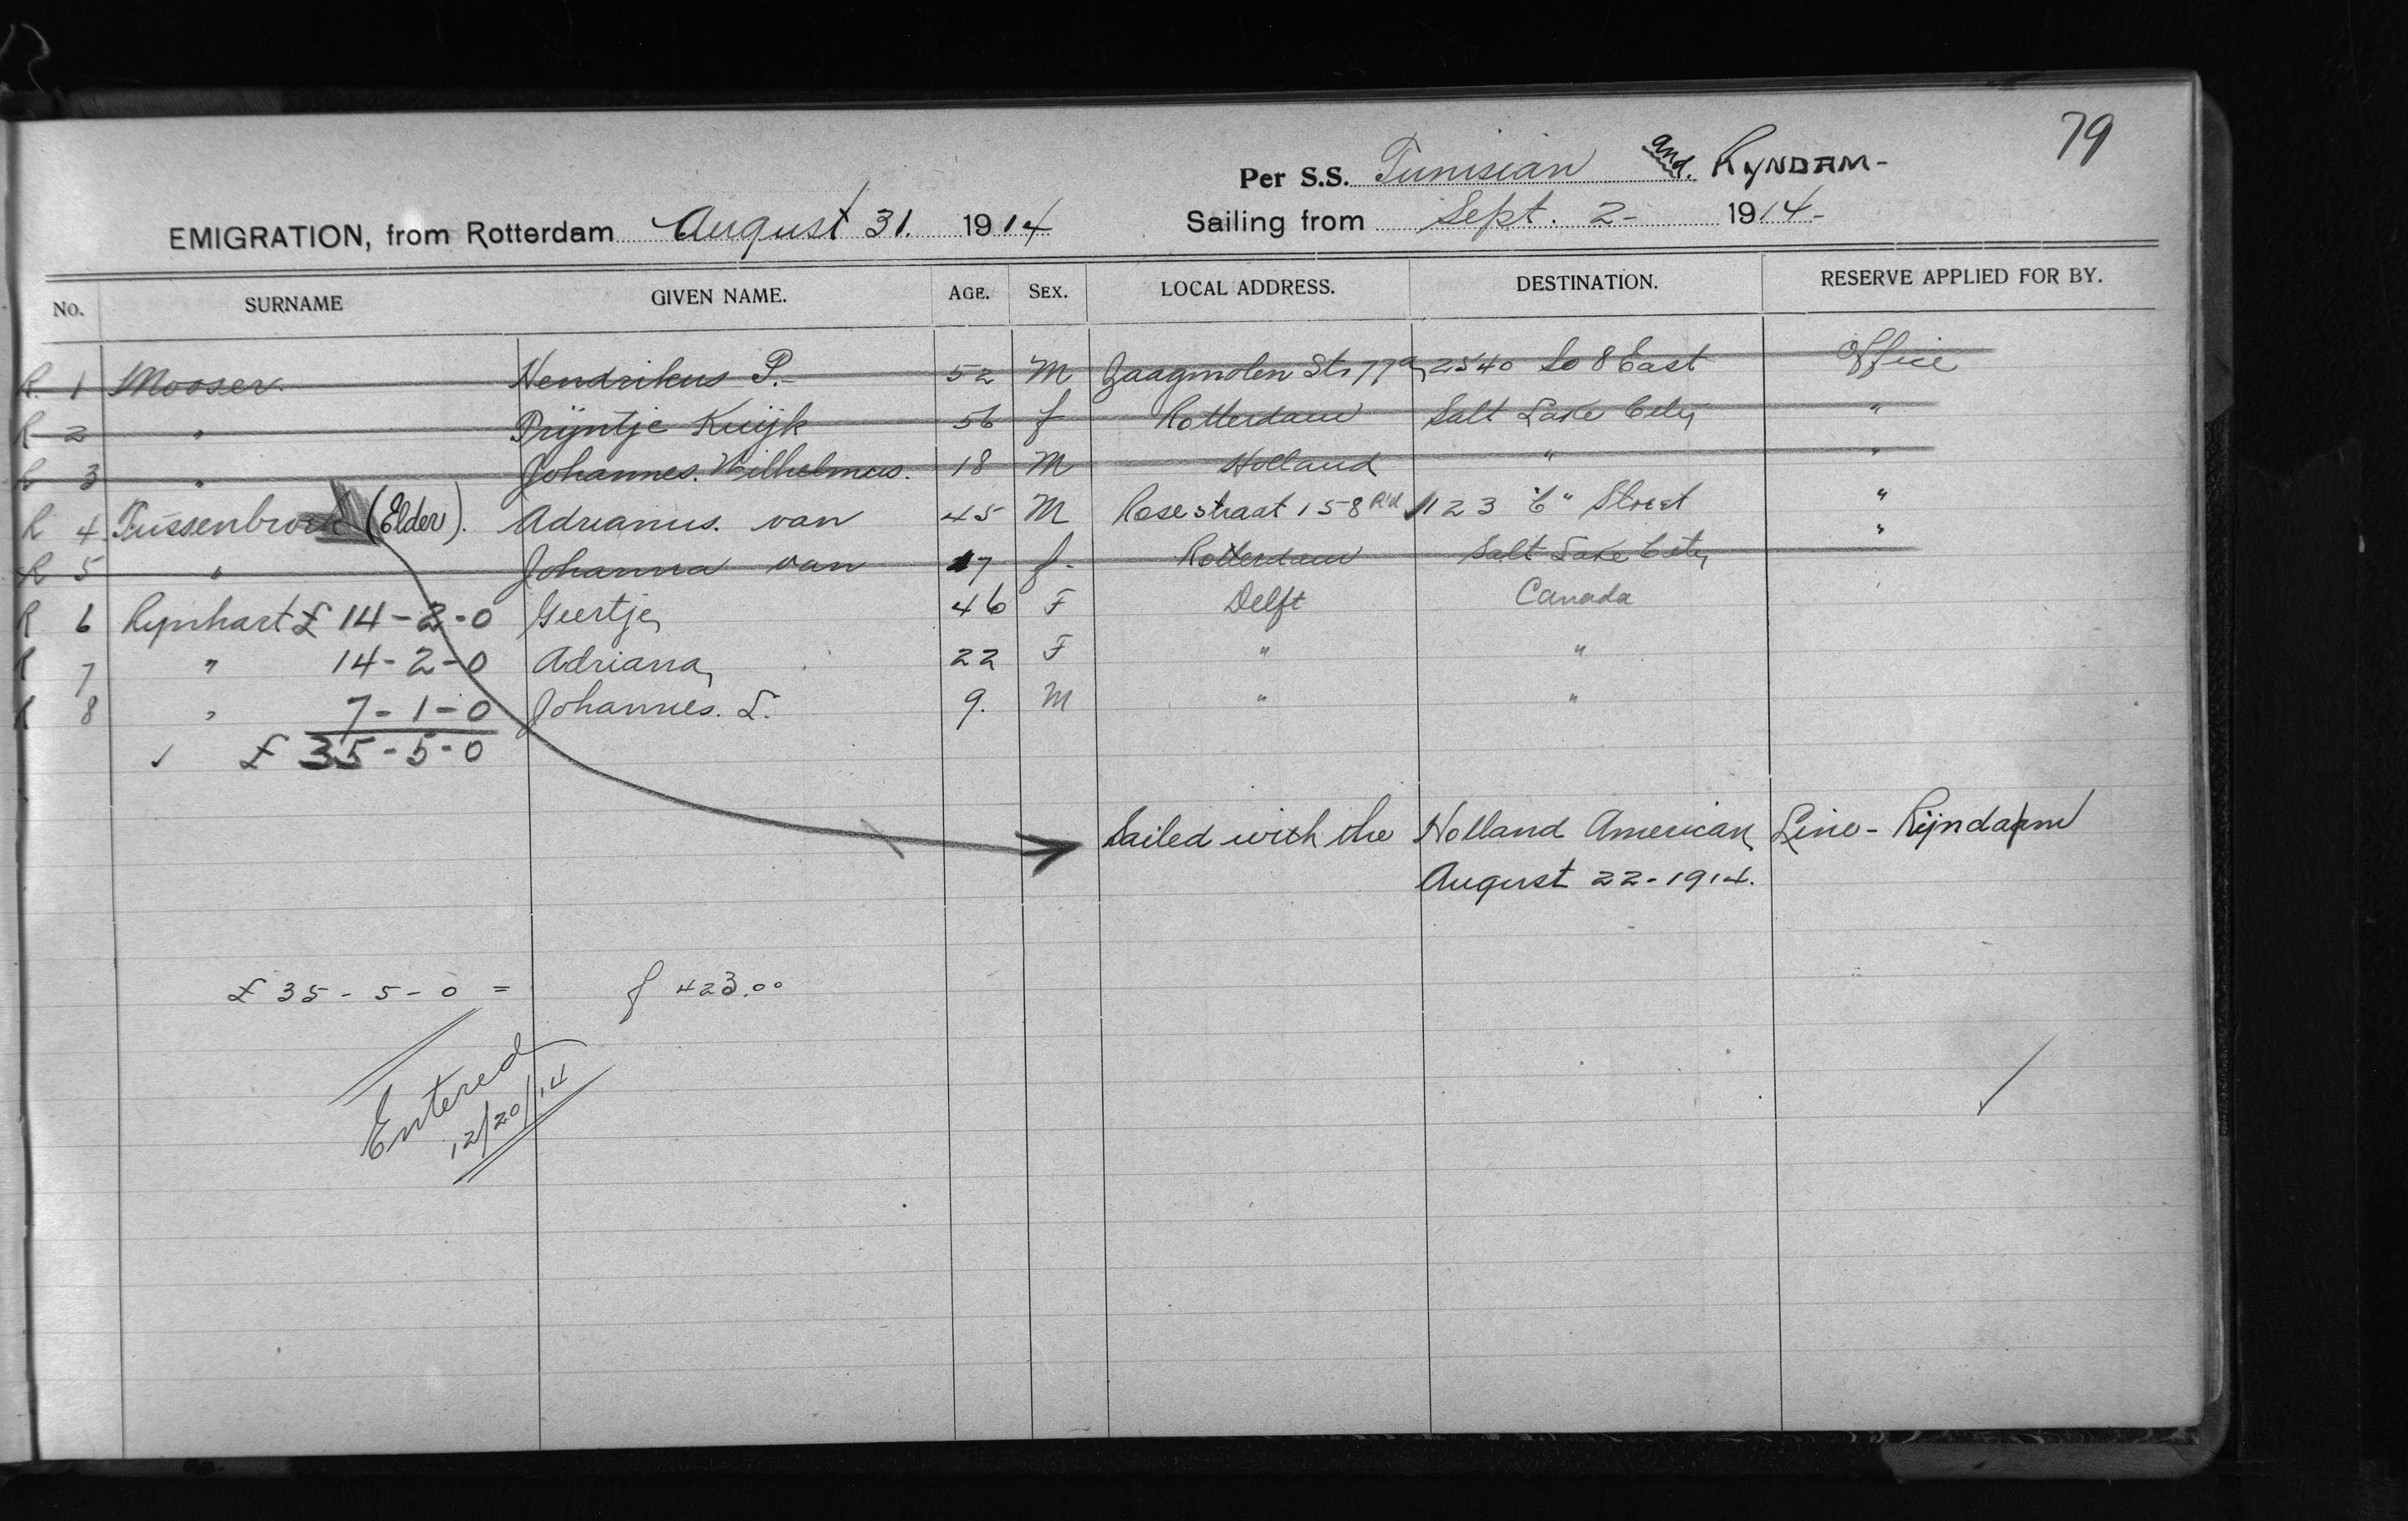 79
Per S.S. Tunisian and. RYNDAM-
EMIGRATION, from Rotterdam August 31. 1914 Sailing from Sept. 2- 1914-
No. SURNAME GIVEN NAME. AGE. SEX. LOCAL ADDRESS. DESTINATION. RESERVE APPLIED FOR BY.
R. 1 Mooser. Hendrikus P. 52 M Zaagmolen Str 77a 2540 So 8 East Office
R 2 " Pijntje Kuijk 56 f Rotterdam Salt Lake City "
R 3 " Johannes. Wilhelmus. 18 M Holland " "
R 4 Tussenbroek (Elder). Adrianus. van 45 M Rosestraat 158 R'd 1123 "E" Street "
R 5 " Johanna van 17 f. Rotterdam Salt Lake City "
R 6 Rynhart £ 14-2-0 Geertje 46 F Delft Canada
R 7 " 14-2-0 Adriana 22 F " "
R 8 " 7-1-0 Johannes. L. 9. M " "
✓ £ 35-5-0
Sailed with the Holland American Line - Rijndam
August 22-1914.
£ 35-5-0 = f 423.00
Entered
12/20/14